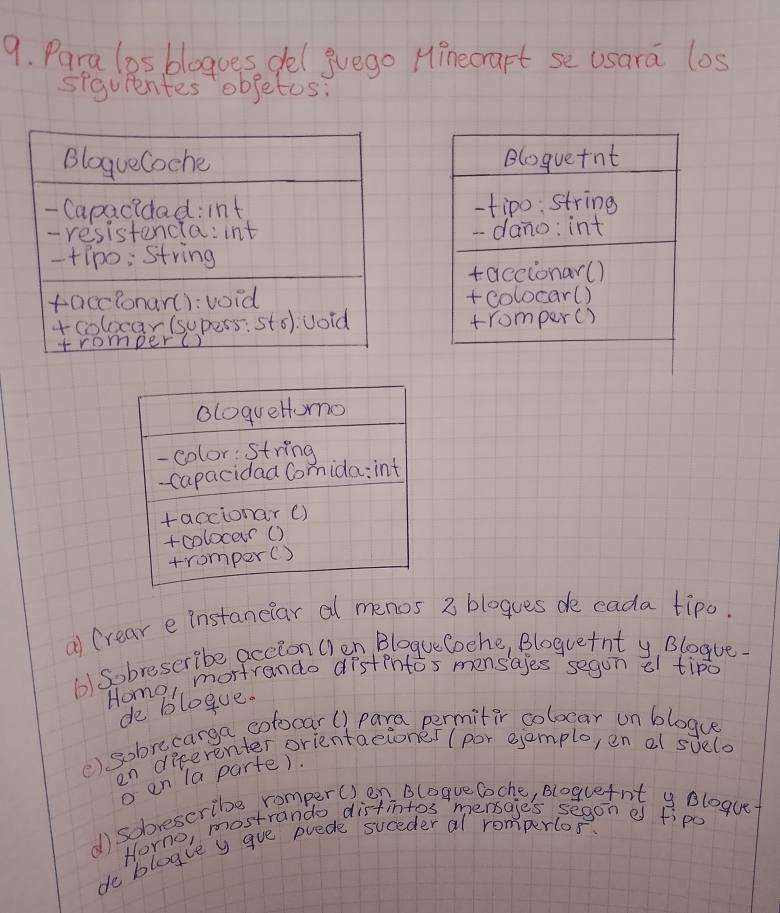 9. Para los bloques del juego Minecraft se usará los
siguientes objetos:
BloqueCoche
-Capacidad: int
-resistencia: int
-tipo: String
+accionar(): void
+colocar(supers: str): void
+romper()
Bloquetnt
-tipo: String
-daño: int
+accionar()
+colocar()
+romper()
BloqueHorno
-color: String
-capacidadComida: int
+accionar()
+colocar()
+romper()
a) Crear e instanciar al menos 2 bloques de cada tipo.
b) Sobrescribe accion() en BloqueCoche, Bloquetnt y Bloque-
Horno, mostrando distintos mensajes segun el tipo
de bloque.
c) Sobrecarga colocar() para permitir colocar un bloque
en diferenter orientaciones (por ejemplo, en el suelo
o en la parte).
d) Sobrescribe romper() en BloqueCoche, Bloquetnt y Bloque-
Horno, mostrando distintos mensajes segon el tipo
de bloque y que puede suceder al romperlos.